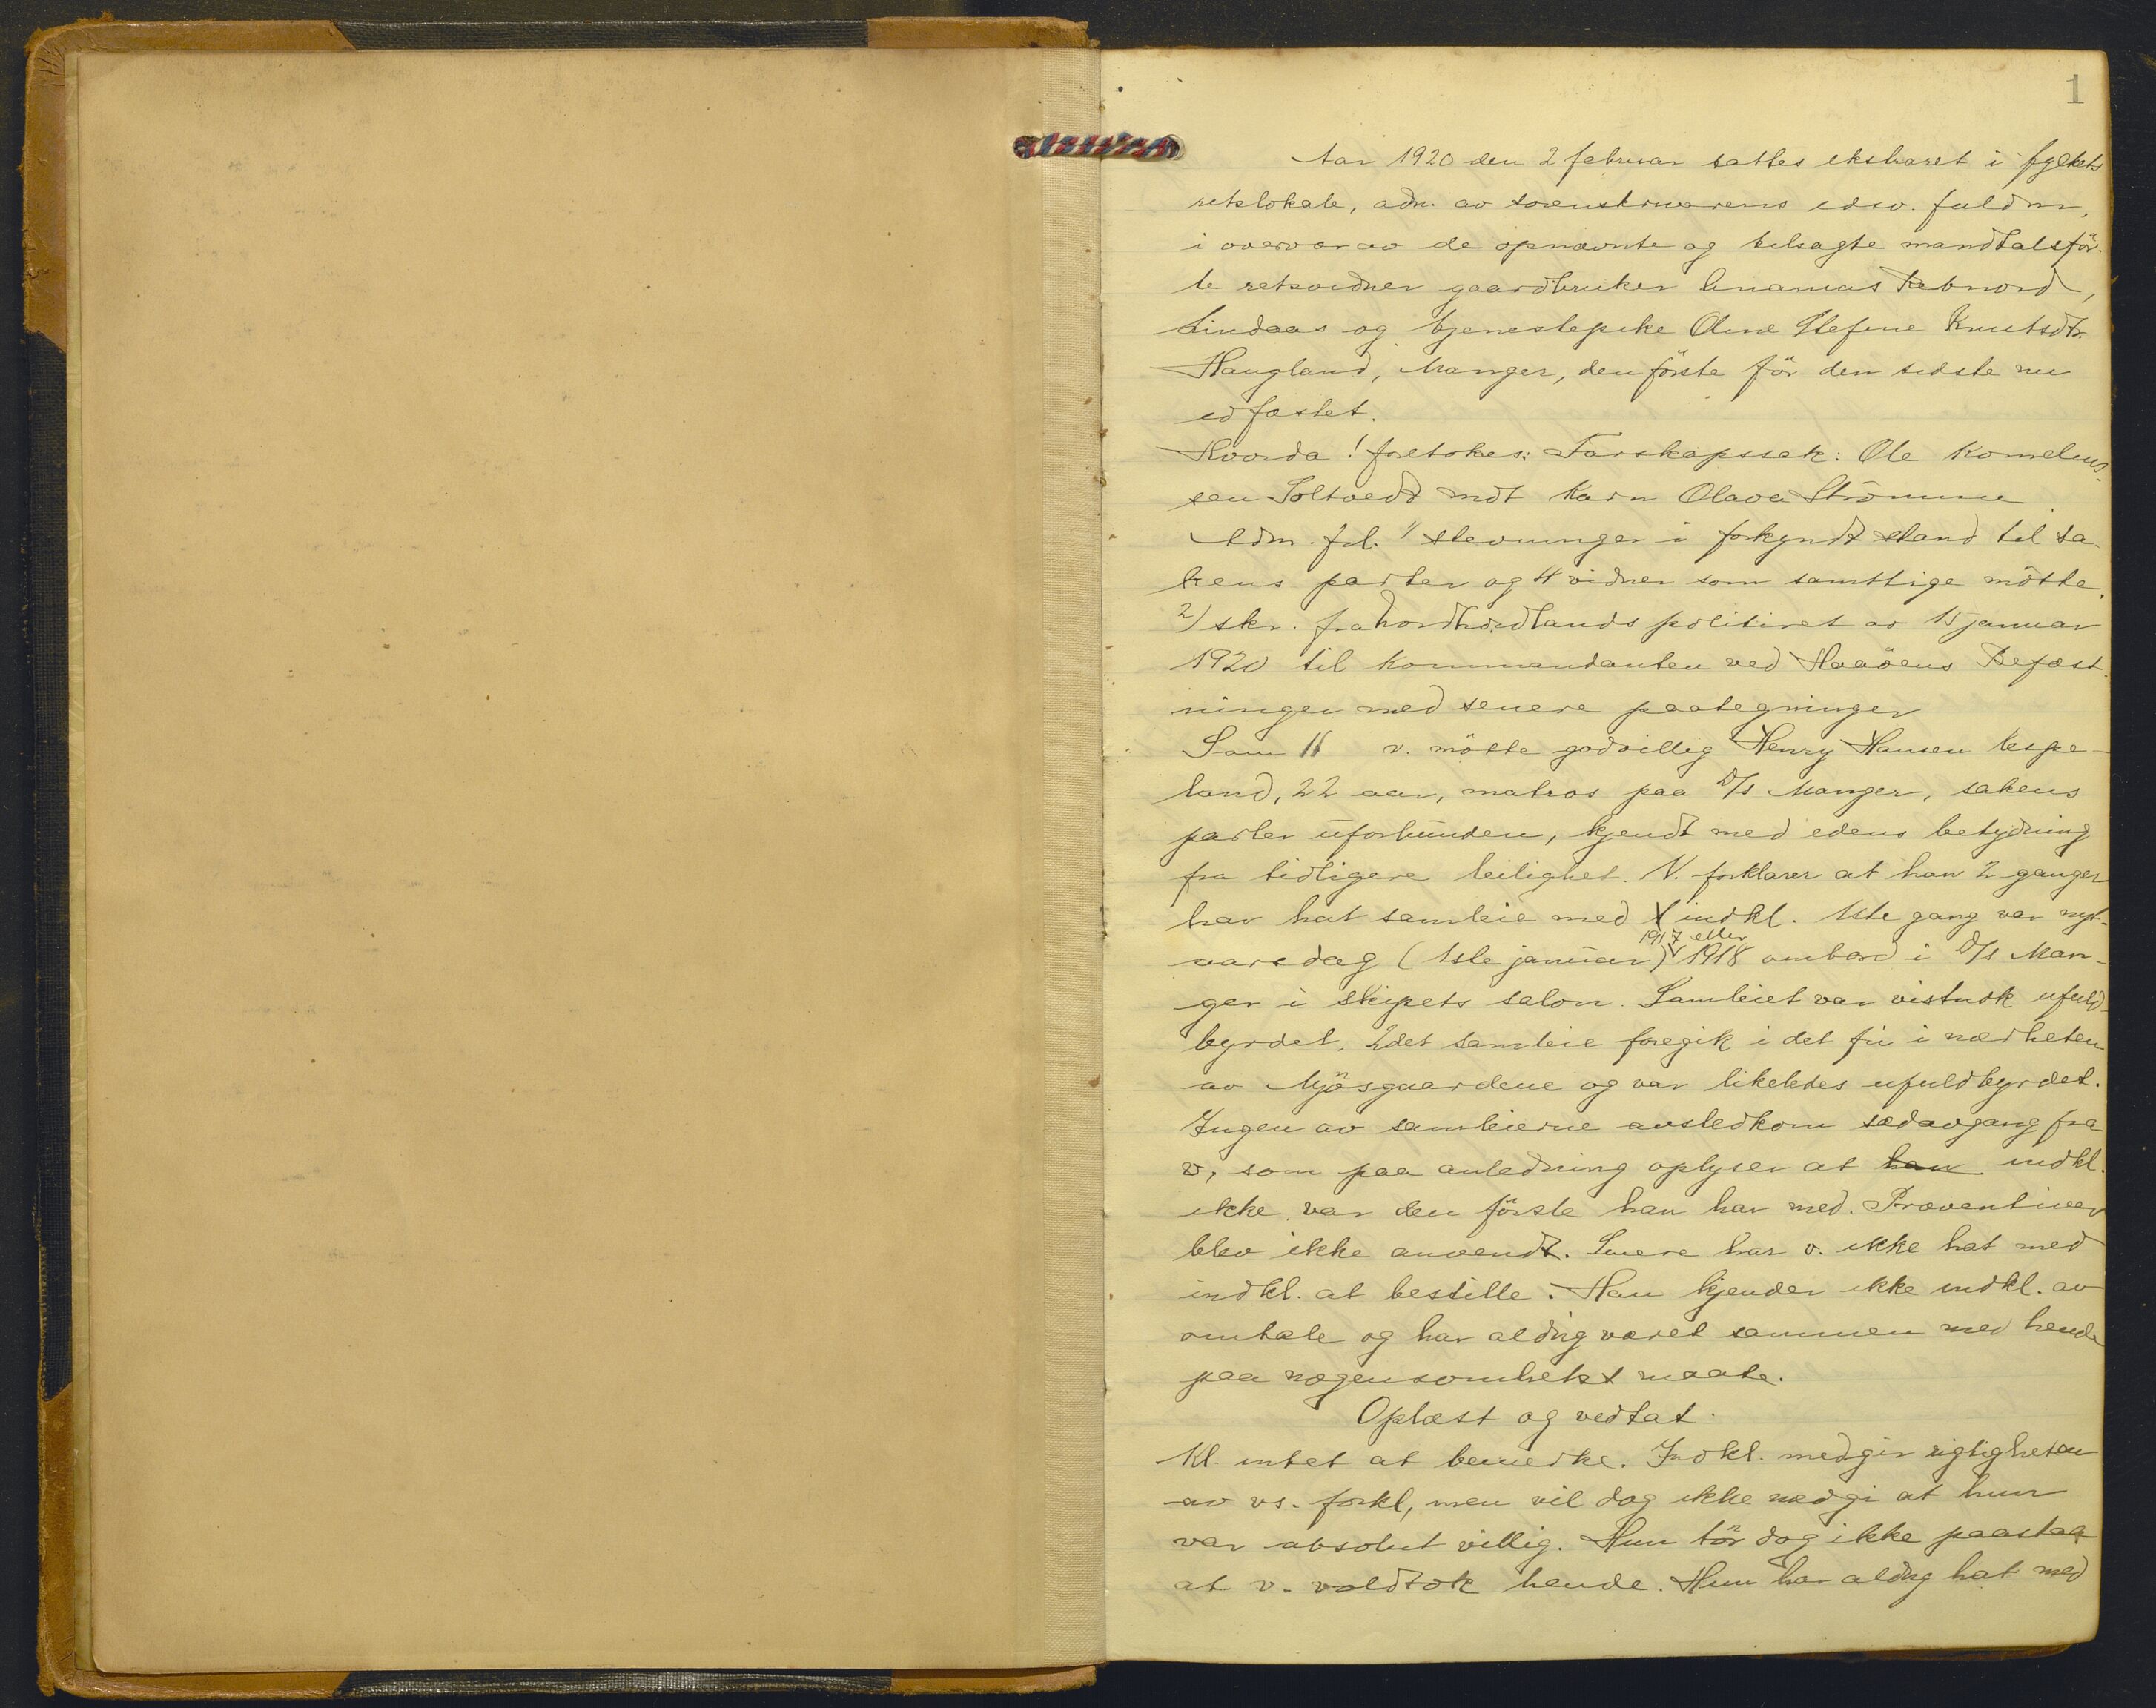 1
Aar 1920 den 2 februar sattes ekstraret i fylkets
retslokale, adm. av sorenskriverens edsv. fuldm,
i overvær av de opnævnte og tilsagte mandtalsför-
te retsvidner gaardbruker Ananias Rebnord,
Lindaas og tjenestepike Oline Stefine Knutsdtr.
Haugland, Manger, den förste för den sidste nu
edfæstet.
Hvorda! foretokes: Farskapssak: Ole Kornelius-
sen Toltvedt mot Karn Olava Strömme
Adm. frl. 1) stevninger i forkyndt stand til sa-
kens parter og 4 vidner som samtlige mötte.
2) skr. fra Nordhordlands politiret av 15 januar
1920 til Kommandanten ved Haaöens Befæst-
ninger med senere paategninger
Som 1ste v. mötte godvillig Henry Hansen Espe-
land, 22 aar, matros paa D/s Manger, sakens
parter uforbunden, kjendt med edens betydning
fra tidligere leilighet. V. forklarer at han 2 ganger
har hat samleie med indkl. 1ste gang var nyt-
1917 eller
aarsdag (1ste januar) 1918 ombord i D/s Man-
ger i skipets salon. Samleiet var vistnok ufuld-
byrdet. 2det samleie foregik i det fri i nærheten
av Mjösgaardene og var likeledes ufuldbyrdet.
Ingen av samleierne avstedkom sædavgang fra
v, som paa anledning oplyser at han indkl.
ikke var den förste han har med. Præventiver
blev ikke anvendt. Senere har v. ikke hat med
indkl. at bestille. Han kjender ikke indkl. av
omtale og har aldrig været sammen med hende
paa nogensomhelst maate.
Oplæst og vedtat.
Kl. intet at bemerke. Indkl. medgir rigtigheten
av vs. forkl, men vil dog ikke medgi at hun
var absolut villig. Hun tör dog ikke paastaa
at v. voldtok hende. Hun har aldrig hat med